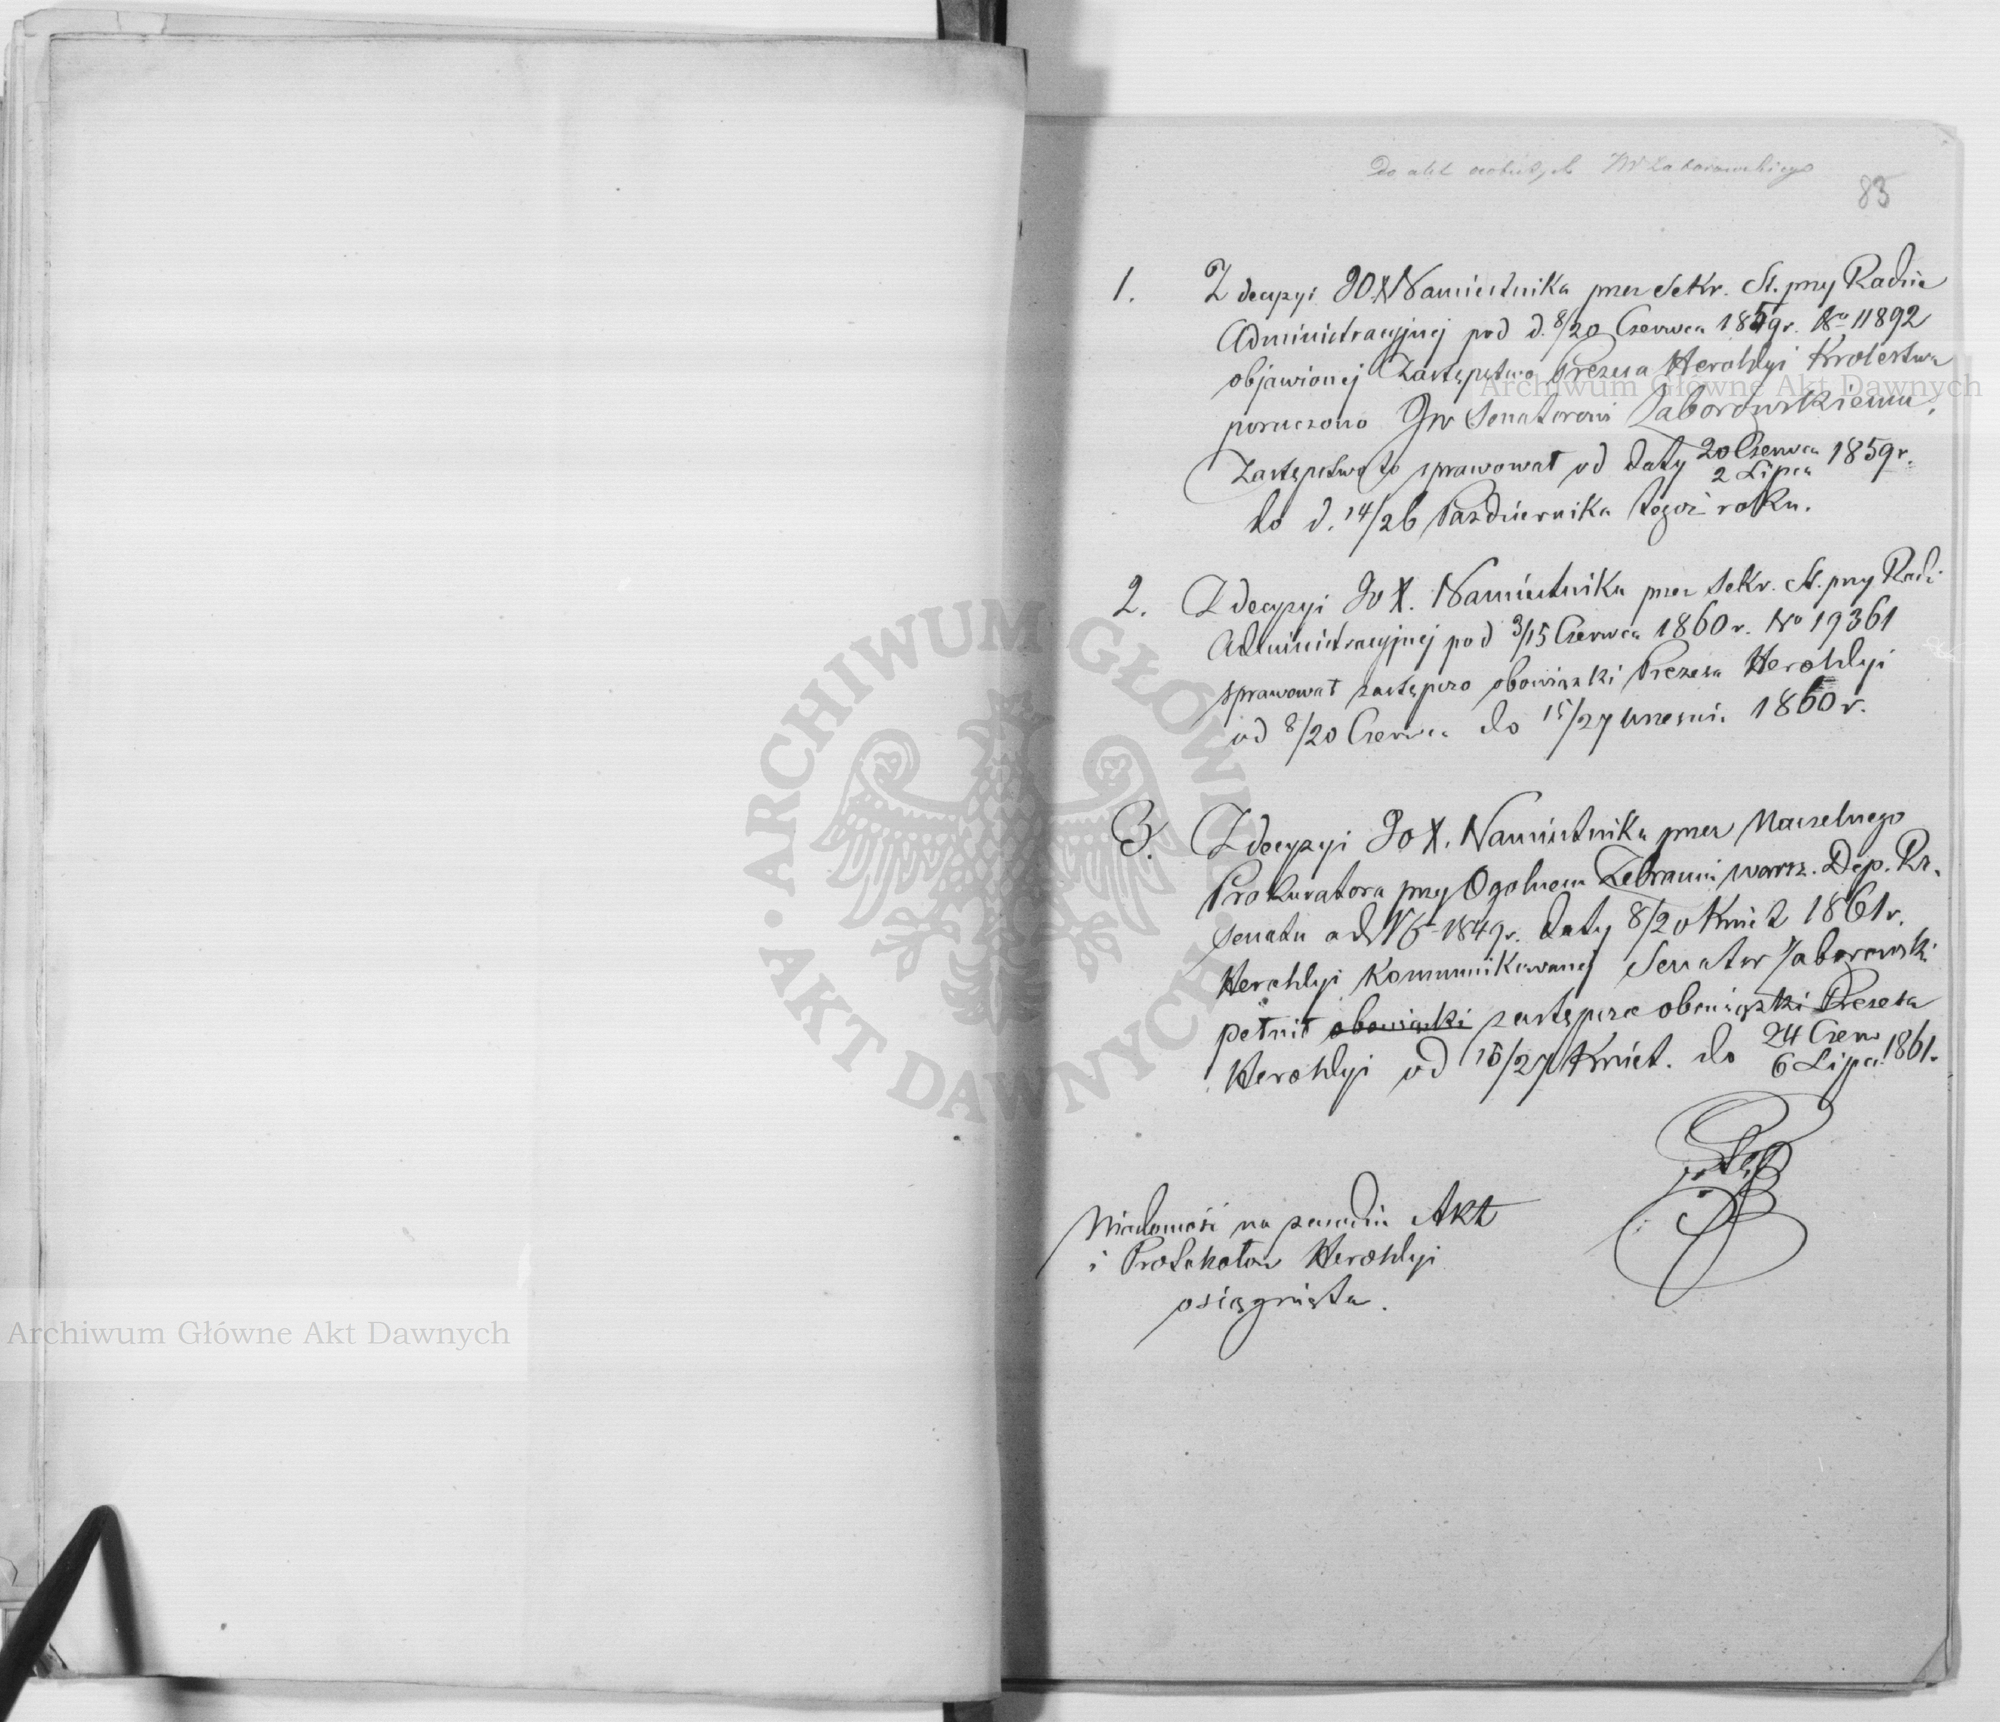 Do akt osobistych JW Zaborowskiego
83
1. Z decyzyi JOX Namiestnika przez Sekr. St. przy Radzie
Administracyjnej pod d. 8/20 Czerwca 1859 r. No 11892
objawionej Zastępstwo Prezesa Heroldyi Królestwa
poruczono JW Senatorowi Zaborowskiemu.
Zastępstwo to sprawował od daty 20 Czerwca / 2 Lipca 1859 r.
do d. 14/26 Października tegoż roku.
2. Z decyzyi JOX. Namiestnika przez Sekr. St. przy Radz.
Administracyjnej pod 3/15 Czerwca 1860 r. No 19361
sprawował zastępczo obowiązki Prezesa Heroldyi
od 8/20 Czerwca do 15/27 Wrześni. 1860 r.
3. Z decyzyi JOX. Namiestnika przez Naczelnego
Prokuratora przy Ogólnem Zebraniu Warsz. Dep. Rz.
Senatu 1849 r. daty 8/20 Kwiet 1861 r.
Heroldyi Komunikowanej Senator Zaborowski
pełnił obowiązki zastępcze obowiązki Prezesa
Heroldyi od 15/27 Kwiet. do 24 Czerw / 6 Lipca 1861.
Wiadomość na zasadzie Akt
i Protokołów Heroldyi
osiągnięta.
Archiwum Główne Akt Dawnych
Archiwum Główne Akt Dawnych
ARCHIWUM GŁÓWNE AKT DAWNYCH